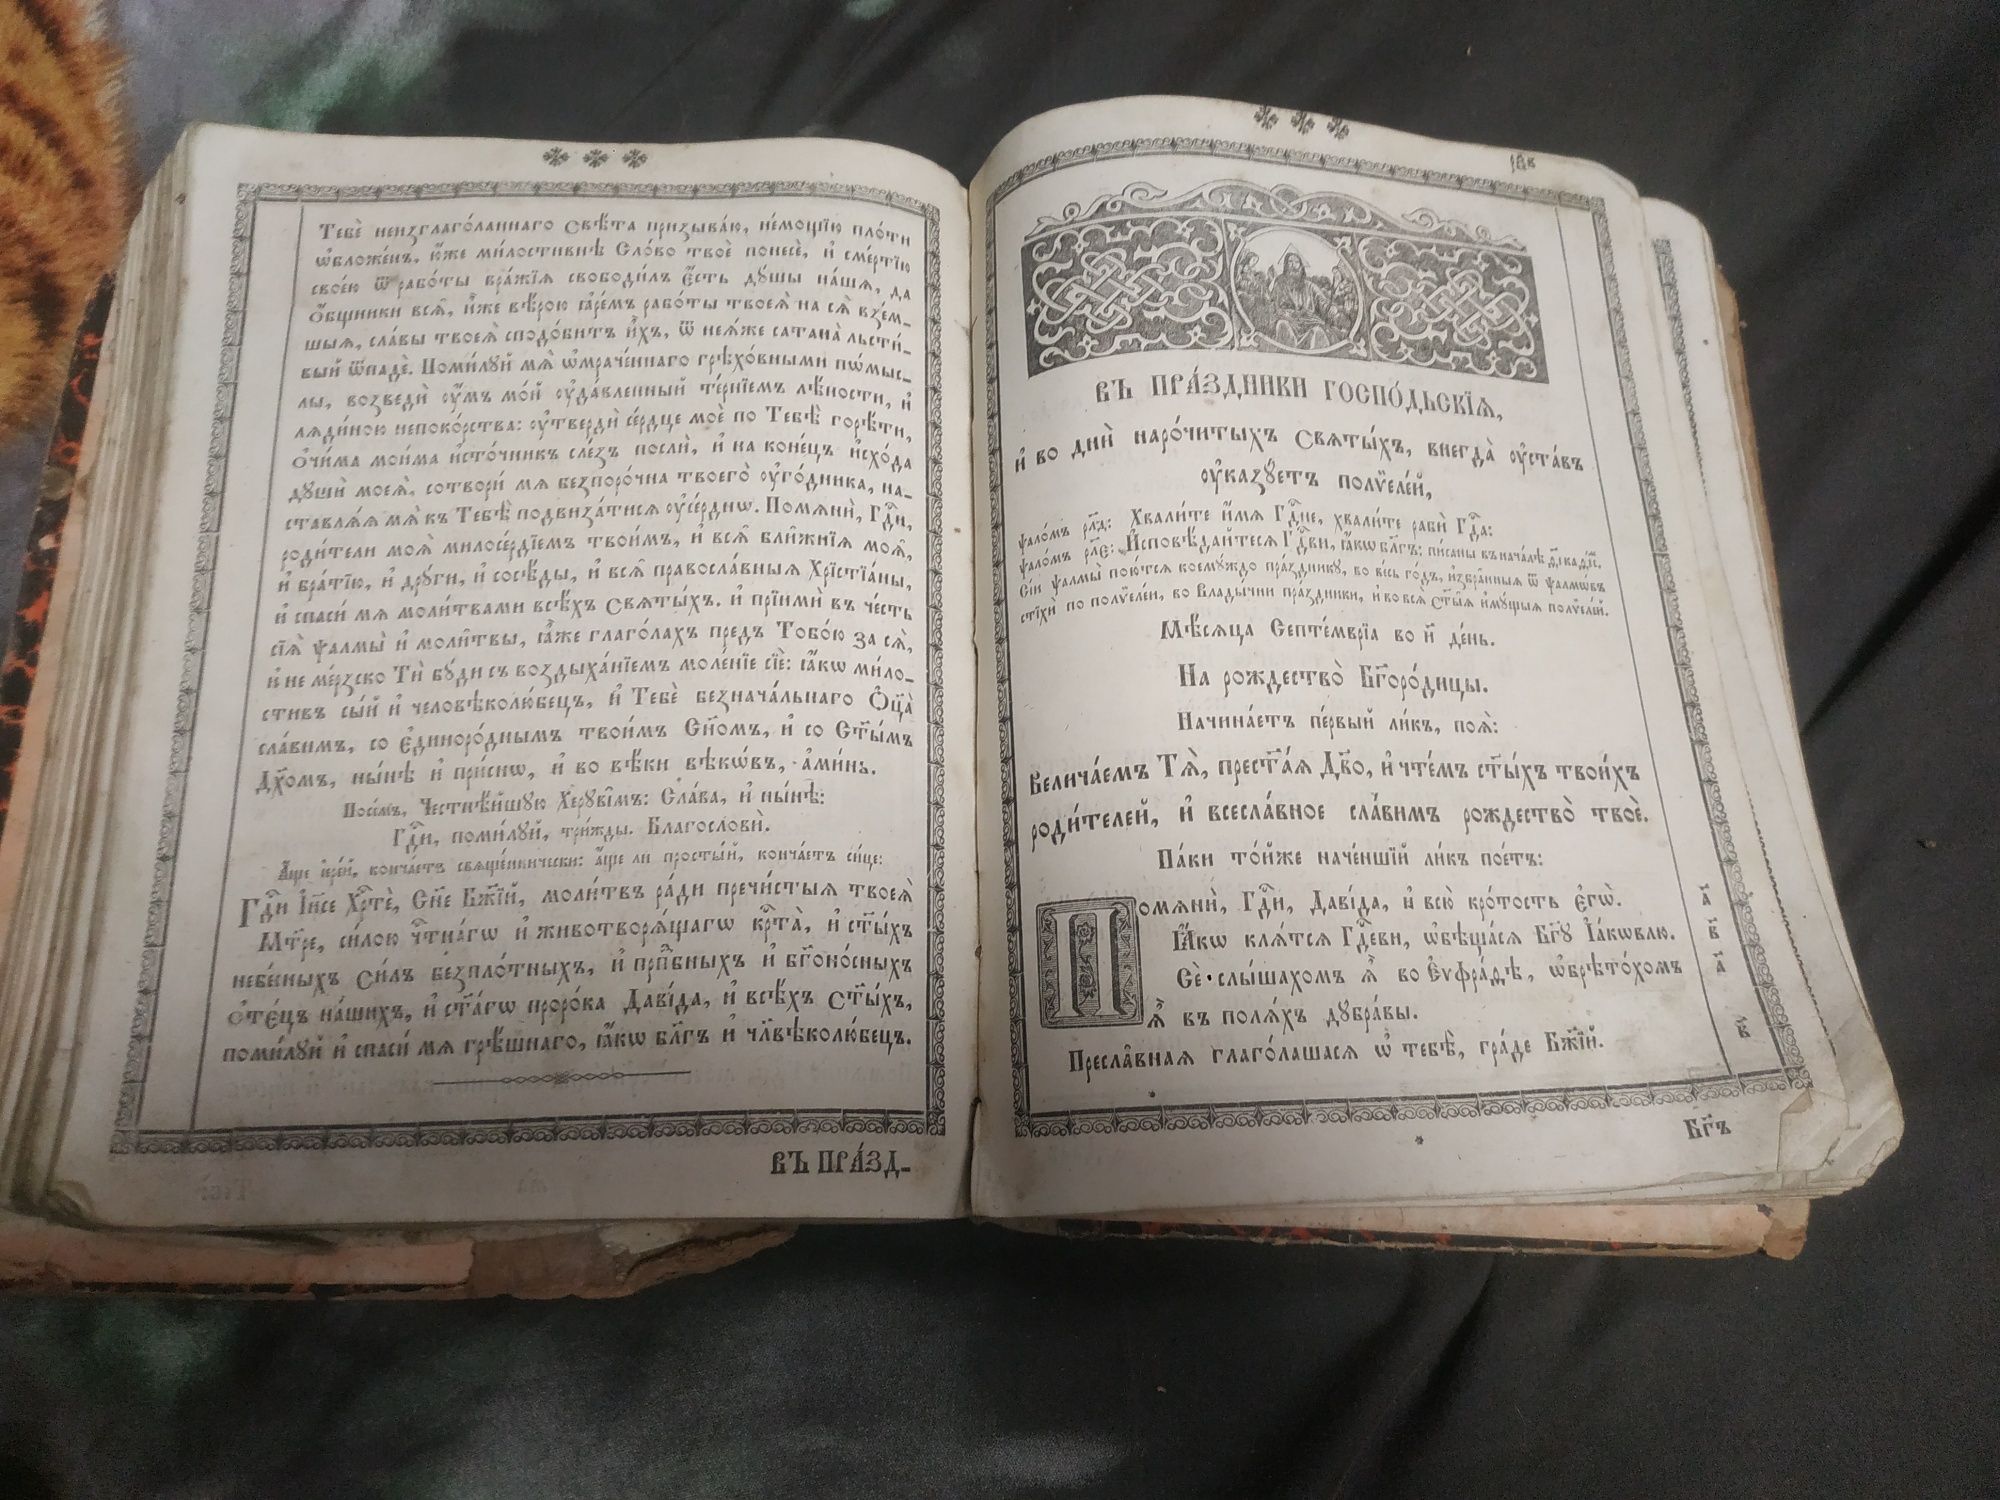 Тебѐ неизглаго́ланнаго свѣ́та призыва́ю, не́мощїю пло́ти
ѡ҆бложе́нъ, ю҆́же ми́лостивнѣ Сло́во твоѐ понесѐ, и҆ сме́ртїю
свое́ю ѿ рабо́ты вра́жїѧ свободи́лъ є҆́сть дꙋ́шы на́шѧ, да
ѻ҆́бщники всѧ̑, и҆̀же вѣ́рою ꙗ҆ре́мъ рабо́ты твоеѧ̀ на сѧ̀ взе́м-
шыѧ, сла́вы твоеѧ̀ сподо́битъ и҆́хъ, ѿ неѧ́же сатана̀ льсти́-
вый ѿпадѐ. Поми́лꙋй мѧ̀ ѡ҆мраче́ннаго грѣхо́вными по́мыс-
лы, возведѝ ᲂу҆́мъ мо́й ᲂу҆да́вленный те́рнїемъ лѣ́ности, и҆
лѧди́ною непоко́рства: ᲂу҆твердѝ се́рдце моѐ по Тебѣ̀ горѣ́ти,
ѻ҆чи́ма мои́ма и҆сто́чникъ сле́зъ послѝ, и҆ на коне́цъ и҆схо́да
дꙋшѝ моеѧ̀, сотвори́ мѧ безпоро́чна твоего̀ ᲂу҆го́дника, на-
ставлѧ́ѧ мѧ̀ къ Тебѣ̀ подвиза́тисѧ ᲂу҆се́рднѡ. Помѧнѝ, Гдⷭ҇и,
роди́тели моѧ̀ милосе́рдїемъ твои́мъ, и҆ всѧ̑ бли̑жнїѧ моѧ̑,
и҆ бра́тїю, и҆ дрꙋ́ги, и҆ сосѣ́ды, и҆ всѧ̑ правосла́вныѧ Хрїстїа́ны,
и҆ спаси́ мѧ моли́твами всѣ́хъ свѧты́хъ. и҆ прїимѝ въ че́сть
сїѧ̑ ѱалмы̀ и҆ моли̑твы, ꙗ҆̀же глаго́лахъ предъ Тобо́ю за сѧ̀,
и҆ не ме́рзско Тѝ бꙋ́ди съ воздыха́нїемъ моле́нїе сїѐ: ꙗ҆́кѡ ми́ло-
стивъ сы́й и҆ человѣколю́бецъ, и҆ Тебѐ безнача́льнаго Ѻ҆ц҃а̀
сла́вимъ, со є҆диноро́днымъ твои́мъ Сн҃омъ, и҆ со Ст҃ы́мъ
Дх҃омъ, ны́нѣ и҆ при́снѡ, и҆ во вѣ́ки вѣкѡ́въ, а҆ми́нь.
Посе́мъ, Честнѣ́йшꙋю Херꙋві̑мъ: Сла́ва, и҆ ны́нѣ:
Гдⷭ҇и, поми́лꙋй, три́жды. Благословѝ.
А҆́ще і҆ере́й, конча́етъ свѧще́ннически: а҆́ще ли просты́й, конча́етъ си́це:
Гдⷭ҇и І҆и҃се Хрⷭ҇тѐ, Сн҃е Бж҃їй, моли́твъ ра́ди пречи́стыѧ твоеѧ̀
Мт҃ре, си́лою чⷭ҇тна́гѡ и҆ животворѧ́щагѡ крⷭ҇та̀, и҆ ст҃ы́хъ
небе́сныхъ си́лъ безпло́тныхъ, и҆ прпⷣбныхъ и҆ бг҃оно́сныхъ
ѻ҆те́цъ на́шихъ, и҆ ст҃а́гѡ проро́ка Даві́да, и҆ всѣ́хъ ст҃ы́хъ,
поми́лꙋй и҆ спаси́ мѧ грѣ́шнаго, ꙗ҆́кѡ бл҃гъ и҆ чл҃вѣколю́бецъ.
ВЪ ПРА́ЗД-
ВЪ ПРА́ЗДНИКИ ГОСПО́ДЬСКЇѦ,
и҆ во днѝ наро́читыхъ свѧты́хъ, внегда̀ ᲂу҆ста́въ
ᲂу҆ка́зꙋетъ полѷеле́й,
ѱало́мъ рл҃д: Хвали́те и҆́мѧ Гдⷭ҇не, хвали́те рабѝ Гдⷭ҇а:
ѱало́мъ рл҃є: И҆сповѣ́дайтесѧ Гдⷭ҇ви, ꙗ҆́кѡ бл҃гъ: пи́саны въ нача́лѣ
Сїи̑ ѱалмы̀ пою́тсѧ коемꙋ́ждо пра́здникꙋ, во ве́сь го́дъ, и҆збра̑нныѧ ѿ ѱалмѡ́въ
стїхѝ по полѷеле́и, во Влады́чни пра́здники, и҆ во всѧ̑ ст҃ы̑ѧ и҆мꙋ́щыѧ полѷеле́й.
Мѣ́сѧца Септе́мврїа во и҃ де́нь.
На рождество̀ Бг҃оро́дицы.
Начина́етъ пе́рвый ли́къ, поѧ̀:
Велича́емъ Тѧ̀, прест҃а́ѧ Дв҃о, и҆ чте́мъ ст҃ы́хъ твои́хъ
роди́телей, и҆ всесла́вное сла́вимъ рождество̀ твоѐ.
Па́ки то́йже наче́ншїй ли́къ пое́тъ:
Помѧнѝ, Гдⷭ҇и, Даві́да, и҆ всю̀ кро́тость є҆гѡ̀.
Ꙗ҆́кѡ клѧ́тсѧ Гдⷭ҇еви, ѡ҆бѣща́сѧ Бг҃ꙋ І҆а́кѡвлю.
Сѐ слы́шахомъ ѧ҆̀ во Є҆ѵфра́ѳѣ, ѡ҆брѣто́хомъ
ѧ҆̀ въ полѧ́хъ дꙋбра́вы.
Пресла̑внаѧ глаго́лашасѧ ѡ҆ тебѣ̀, гра́де Бж҃їй.
Бг҃ъ